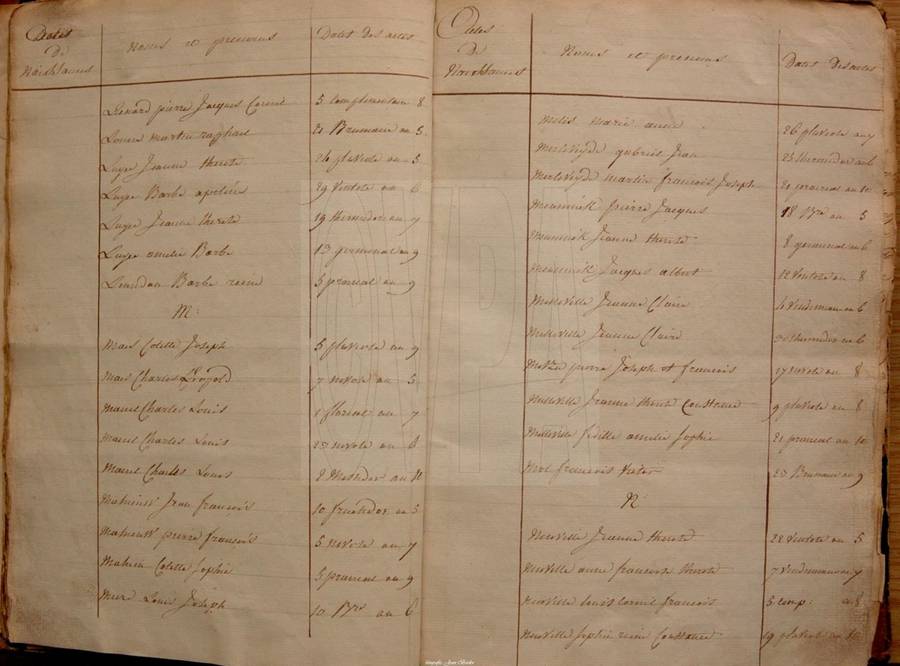 Dates
De
Naissances
Noms et prenoms
Dates des actes
Lienard pierre Jacques Cornil 5 complementaire 8
Louis martin raphael 21 Brumaire an 5
Luyx Jeanne therese 26 pluviose an 5
Luyx Barbe 29 Ventose an 6
Luyx Jeanne therese 19 thermidor an 7
Luyx amelie Barbe 13 germinal an 9
Barbe reine 5 prairial an 9
M
Maes Colette Joseph 5 pluviose an 9
Maes Charles Léopold 7 nivose an 5
Marcel Charles Louis 1 floreal an 7
Marcel Charles Louis nivose an 6
Marcel Charles Louis 2 Messidor an
Jean francois 10 fructidor an 5
pierre francois 5 nivose an 7
Colette Sophie 5 prairial an 9
Louis Joseph 10 Bre an 6
Dates
De
Naissances
Noms et prenoms
Dates Des actes
marie anne 26 pluviose an 7
Merleveyde gabriel Jean 23 thermidor an 6
Merleveyde martin francois Joseph 20 prairial an 10
Meuninck pierre Jacques 18 Bre an 5
Meuninck Jeanne therese 8 germinal an 6
Meuninck Jacques albert 12 Ventose an 8
Melleville Jeanne Claire 6 Vendemiaire an 6
Melleville Jeanne Claire thermidor an 6
pierre Joseph et francois 17 nivose an 8
Melleville Jeanne therese Constance 9 pluviose an 8
Melleville amelie Sophie 21 prairial an 10
Mol francois 23 Brumaire an 9
N
Neuville Jeanne therese 28 Ventose an 5
Neuville anne francoise therese 7 Vendemiaire an 7
Neuville louis Cornil francois 5 comp. an 8
Neuville Sophie reine Constance 19 pluviose an